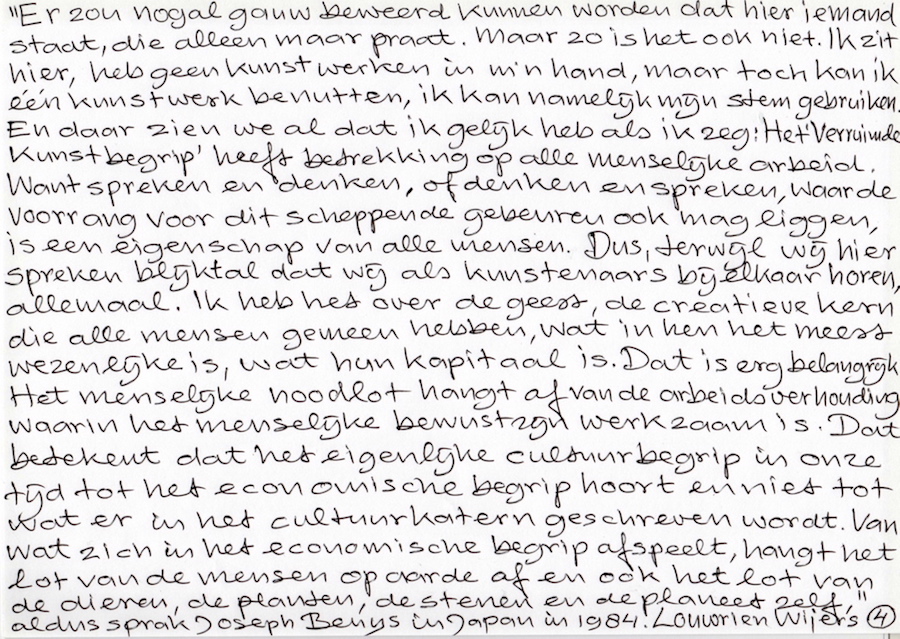 "Er zou nogal gauw beweerd kunnen worden dat hier iemand
staat, die alleen maar praat. Maar zo is het ook niet. Ik zit
hier, heb geen kunstwerken in m'n hand, maar toch kan ik
één kunstwerk benutten, ik kan namelijk mijn stem gebruiken.
En daar zien we al dat ik gelijk heb als ik zeg: Het 'Verruimde
Kunstbegrip' heeft betrekking op alle menselijke arbeid.
Want spreken en denken, of denken en spreken, waar de
voorrang voor dit scheppende gebeuren ook mag liggen,
is een eigenschap van alle mensen. Dus, terwijl wij hier
spreken blijkt al dat wij als kunstenaars bij elkaar horen,
allemaal. Ik heb het over de geest, de creatieve kern
die alle mensen gemeen hebben, wat in hen het meest
wezenlijke is, wat hun kapitaal is. Dat is erg belangrijk
Het menselijke noodlot hangt af van de arbeidsverhouding
waarin het menselijke bewustzijn werkzaam is. Dat
betekent dat het eigenlijke cultuurbegrip in onze
tijd tot het economische begrip hoort en niet tot
wat er in het cultuurkatern geschreven wordt. Van
wat zich in het economische begrip afspeelt, hangt het
lot van de mensen op aarde af en ook het lot van
de dieren, de planten, de stenen en de planeet zelf,"
aldus sprak Joseph Beuys in Japan in 1984. Louwrien Wijers 4